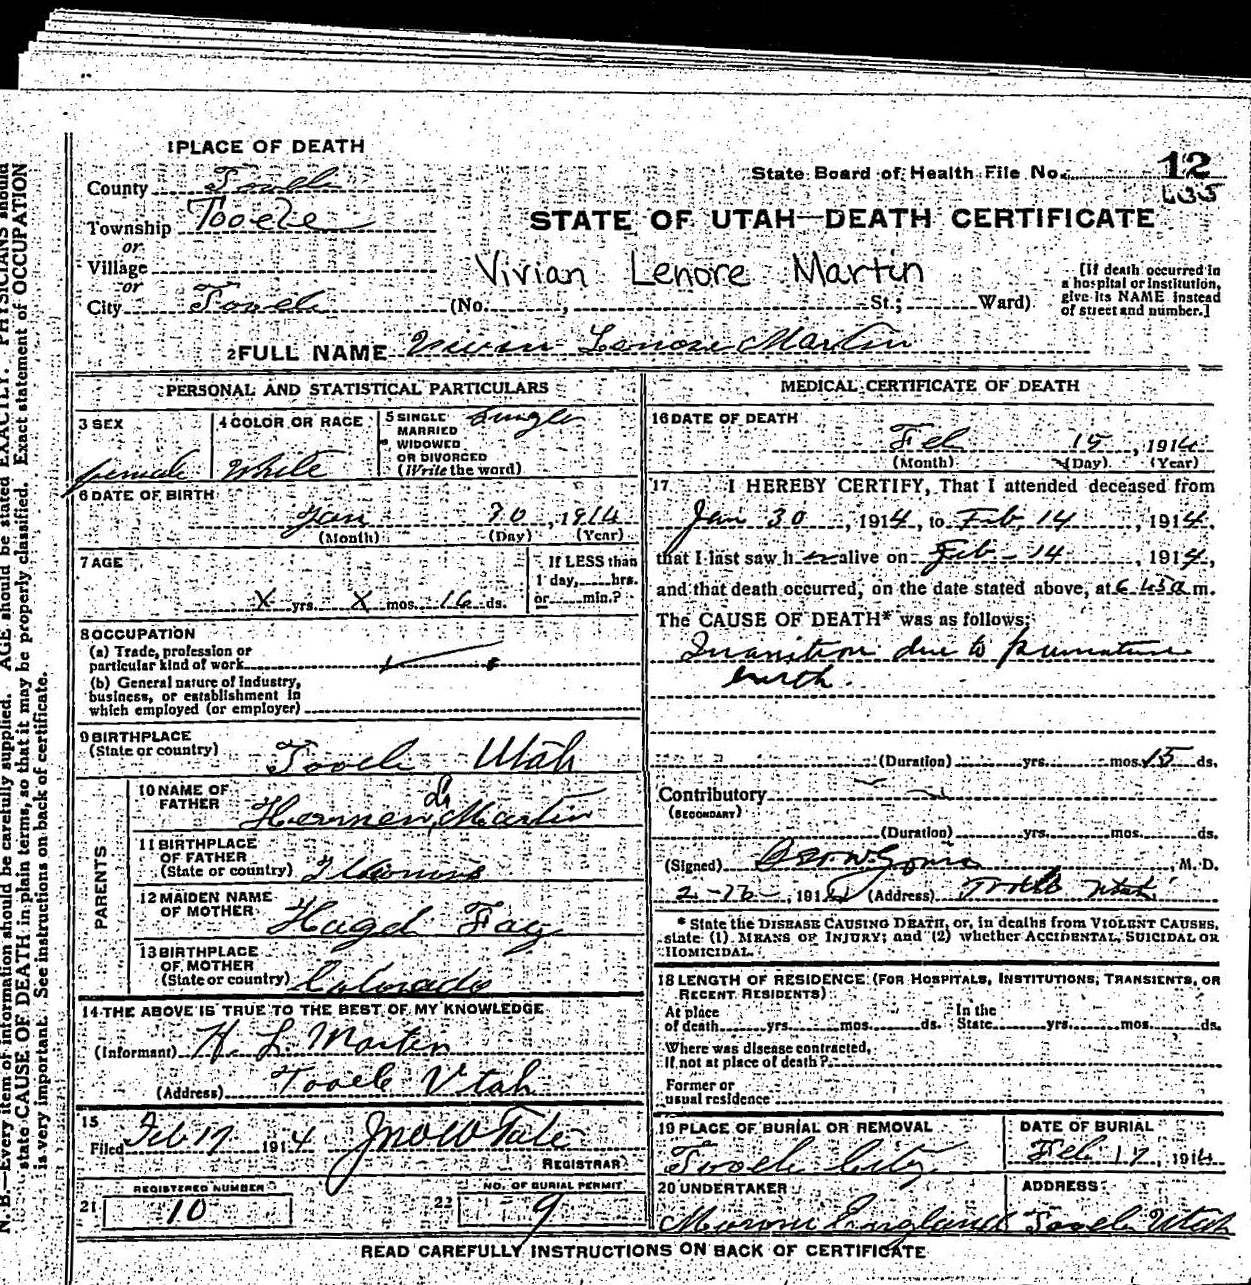 1 PLACE OF DEATH
State Board of Health File No. 12
435
County Tooele
Township Tooele
or
Village
or
City Tooele
STATE OF UTAH—DEATH CERTIFICATE
Vivian Lenore Martin
(No. , St.; Ward)
[If death occurred in
a hospital or institution,
give its NAME instead
of street and number.]
2 FULL NAME Vivian Lenore Martin
PERSONAL AND STATISTICAL PARTICULARS
3 SEX
female
4 COLOR OR RACE
White
5 SINGLE
MARRIED
WIDOWED
OR DIVORCED
(Write the word)
Single
6 DATE OF BIRTH
Jan 30, 1914
(Month) (Day) (Year)
7 AGE
X yrs. X mos. 16 ds.
If LESS than
1 day, hrs.
or min.?
8 OCCUPATION
(a) Trade, profession or
particular kind of work
(b) General nature of Industry,
business, or establishment in
which employed (or employer)
9 BIRTHPLACE
(State or country)
Tooele Utah
PARENTS
10 NAME OF
FATHER
Hermen L. Martin
11 BIRTHPLACE
OF FATHER
(State or country) Illinois
12 MAIDEN NAME
OF MOTHER
Hazel Fay
13 BIRTHPLACE
OF MOTHER
(State or country) Colorado
14 THE ABOVE IS TRUE TO THE BEST OF MY KNOWLEDGE
(Informant) H. L. Martin
(Address) Tooele Utah
15
Filed Feb 17 1914 Jno W Tate
REGISTRAR
REGISTERED NUMBER
21 10
NO. OF BURIAL PERMIT
22 9
MEDICAL CERTIFICATE OF DEATH
16 DATE OF DEATH
Feb 15, 1914
(Month) (Day) (Year)
17 I HEREBY CERTIFY, That I attended deceased from
Jan 30, 1914, to Feb 14, 1914,
that I last saw her alive on Feb-14, 1914,
and that death occurred, on the date stated above, at 6 45a m.
The CAUSE OF DEATH* was as follows:
Inanition due to premature
birth.
(Duration) yrs. mos. 15 ds.
Contributory
(SECONDARY)
(Duration) yrs. mos. ds.
(Signed) M. D.
2-16-, 1914 (Address) Tooele Utah
* State the DISEASE CAUSING DEATH, or, in deaths from VIOLENT CAUSES,
state (1) MEANS OF INJURY; and (2) whether ACCIDENTAL, SUICIDAL OR
HOMICIDAL.
18 LENGTH OF RESIDENCE (FOR HOSPITALS, INSTITUTIONS, TRANSIENTS, OR
RECENT RESIDENTS)
At place
of death yrs. mos. ds.
In the
State yrs. mos. ds.
Where was disease contracted,
if not at place of death?
Former or
usual residence
19 PLACE OF BURIAL OR REMOVAL
Tooele City
DATE OF BURIAL
Feb 17, 1914
20 UNDERTAKER
Moroni England
ADDRESS
Tooele Utah
READ CAREFULLY INSTRUCTIONS ON BACK OF CERTIFICATE
N. B.—Every item of information should be carefully supplied. AGE should be stated EXACTLY. PHYSICIANS should
state CAUSE OF DEATH in plain terms, so that it may be properly classified. Exact statement of OCCUPATION
is very important. See instructions on back of certificate.